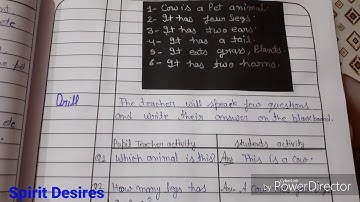 1- Cow is a Pet animal.
2- It has four legs.
3- It has two ears.
4- It has a tail.
5- It eats grass, Plants.
6- It has two horns.
Drill
The teacher will speak few questions
and write their answer on the blackboard.
Pupil Teacher activity
students activity
Q1 Which animal is this?
Ans This is a cow.
Q2 How many legs has
Ans A cow
Spirit Desires
PowerDirector